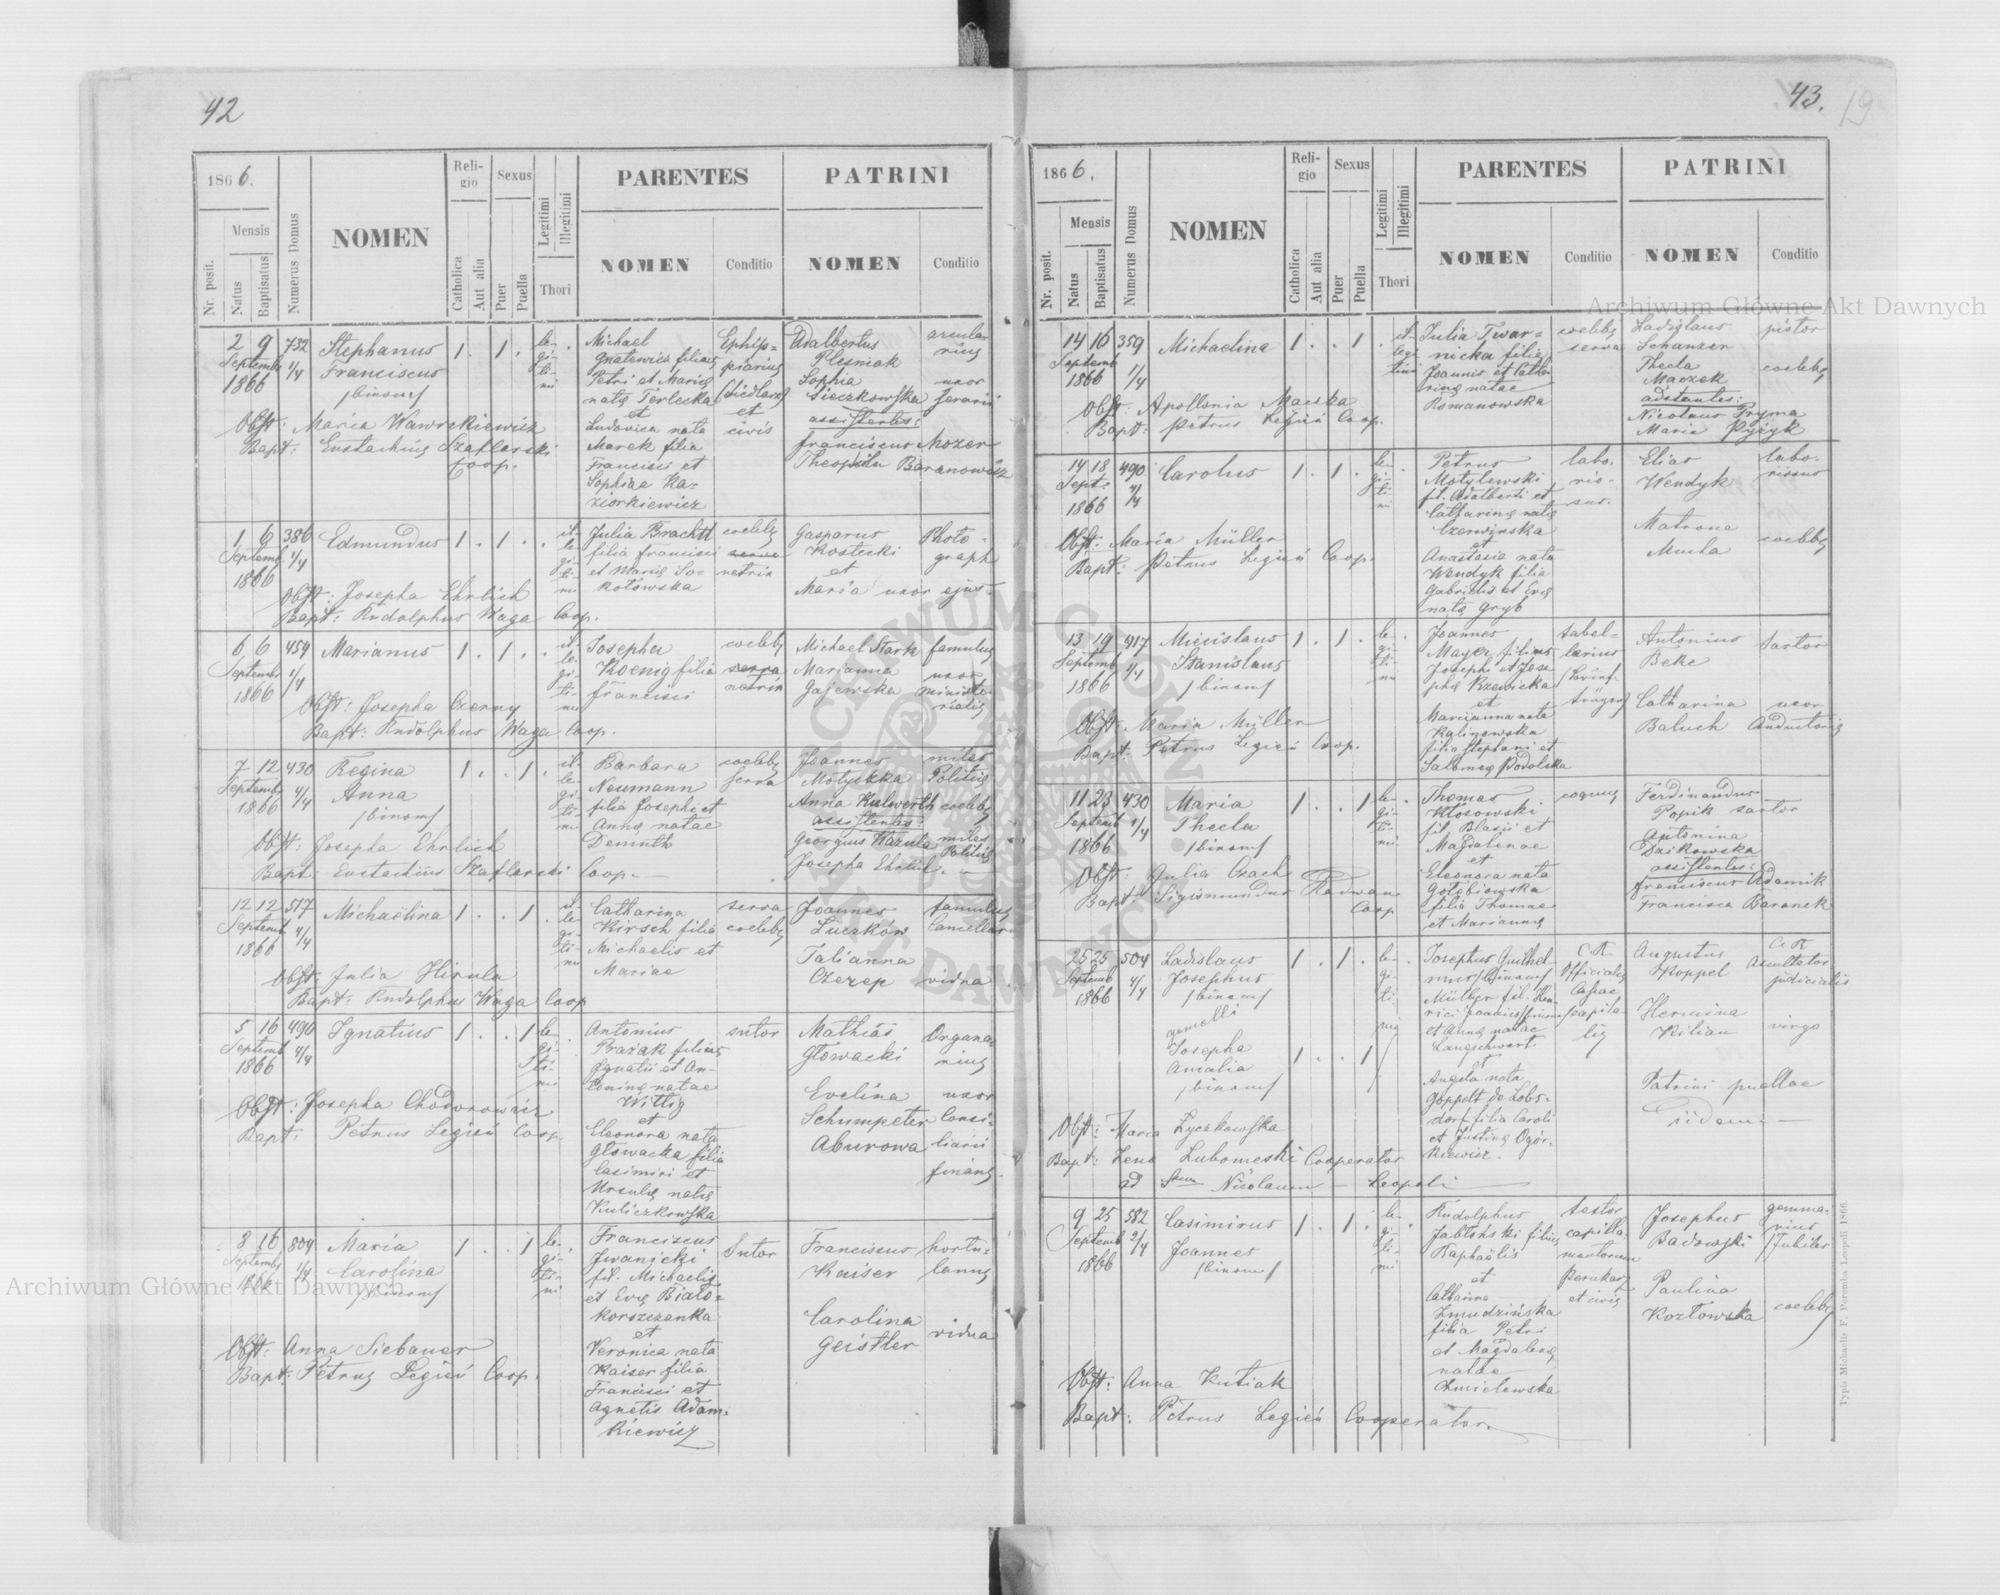 42
1866.
Nr. posit.
Mensis
Natus
Baptisatus
Numerus Domus
NOMEN
Religio
Catholica
Aut alia
Sexus
Puer
Puella
Legitimi
Illegitimi
Thori
PARENTES
NOMEN
Conditio
PATRINI
NOMEN
Conditio
2 9 732 Stephanus 1 . 1 .
Septembr 1/4 Franciscus
1866 /binom/
legitimi
Michael
Gnatewicz filius
Petri et Mariæ
natæ Terlecka
et
Ludovica nata
Marek filia
Francisci et
Sophiae Kaziorkiewicz
Ephippiarius
(Siedlarz)
et
civis
Adalbertus
Plesniak
Sophia
Sieczkowska
assistentes:
Franciscus Mozer
Theophila Baranowicz
arcularius
uxor
ferarii
Obst: Maria Wawrzkiewicz
Bapt: Eustachius Szaflarski
Coop.
1 6 386 Edmundus 1 . 1 .
Septemb. 1/4
1866
illegitimi
Julia Brachtl
filia Francisci
et Mariæ Sokołowska
coelebs
netrix
Gasparus
Kostecki
et
Maria uxor ejus.
Photograph
Obst: Josepha Ehrlich
Bapt: Rudolphus Waga Coop.
6 6 454 Marianus 1 . 1 .
Septembr 1/4
1866
illegitimi
Josepha
Koenig filia
Francisci
coelebs
netrix
Michael Stark
Marianna
Gajewska
famulus
uxor
ministerialis
Obst: Josepha Czerny
Bapt: Rudolphus Waga Coop.
7 12 430 Regina 1 . . 1 .
Septemb 4/4 Anna
1866 /binom/
illegitimi
Barbara
Neumann
filia Josephi et
Annæ natae
Demuth
coelebs
serva
Joannes
Motyckka
Anna Kulwerth
assistentes:
Georgius Kazula
Josepha Ehrlich.
miles
Politiæ
coelebs
miles
Politiæ
Obst: Josepha Ehrlich
Bapt: Eustachius Szaflarski Coop.
12 12 517 Michaëlina 1 . . 1
Septemb 4/4
1866
illegitimi
Catharina
Kirsch filia
Michaelis et
Mariae
serva
coelebs
Joannes
Luczków
Talianna
Czerep
famulus
Cancellariæ
vidua
Obst: Julia Hirula
Bapt: Rudolphus Waga Coop
5 16 490 Ignatius 1 . . 1
Septemb 4/4
1866
legitimi
Antonius
Prażak filius
Ignatii et Antoninæ natae
Wittig
et
Eleonora nata
Głowacka filia
Casimiri et
Ursulæ natæ
Kuliczkowska
sutor
Mathias
Głowacki
Evelina
Schumpeter
Aburowa
Organarius
uxor
Consiliarii
finans.
Obst: Josepha Chodorowicz
Bapt: Petrus Legieć Coop.
8 16 804 Maria 1 . . 1
Septemb 1/4 Carolina
1866 /binom/
legitimi
Franciscus
Iwanicki
fil. Michaelis
et Evæ Białokorszczanka
et
Veronica nata
Kaiser filia
Francisci et
Agnetis Adamkiewicz
Sutor
Franciscus
Kaiser
Carolina
Geistler
hortulanus
vidua
Obst: Anna Siebauer
Bapt: Petrus Legieć Coop.
43.
19
1866.
Nr. posit.
Mensis
Natus
Baptisatus
Numerus Domus
NOMEN
Religio
Catholica
Aut alia
Sexus
Puer
Puella
Legitimi
Illegitimi
Thori
PARENTES
NOMEN
Conditio
PATRINI
NOMEN
Conditio
14 16 359 Michaelina 1 . . 1 .
Septemb 1/4
1866
illegitimi
Julia Twarnicka filia
Joannis et Catharinæ natae
Romanowska
coelebs
serva
Ladislaus
Schanzer
Thecla
Maczek
adstantes:
Nicolaus Pryma
Maria Pyżyk
pistor
coelebs
Obst: Apollonia Maiska
Bapt: Petrus Legieć Coop.
14 18 490 Carolus 1 . 1 .
Sept. 4/4
1866
legitimi
Petrus
Motylewski
fil. Adalberti et
Catharinæ natæ
Czerwinska
et
Anastasia nata
Wendyk filia
Gabrielis et Evæ
natæ Gryb
laboriosus
Elias
Wendyk
Matrona
Mucha
laboriosus
coelebs
Obst: Maria Müller
Bapt: Petrus Legieć Coop.
13 19 417 Miecislaus 1 . 1 .
Septemb 1/4 Stanislaus
1866 /binom/
legitimi
Joannes
Mayer filius
Josephi et Josephæ Rzewicka
et
Marcianna nata
Kalinowska
filia Stephani et
Salomeæ Podolska
tabellarius
/Briefträger/
Antonius
Beke
Catharina
Baluch
Sartor
uxor
Conductoris
Obst: Maria Müller
Bapt: Petrus Legieć Coop.
11 23 430 Maria 1 . . 1
Septemb 4/4 Thecla
1866 /binom/
legitimi
Thomas
Kłosowski
fil Blasii et
Magdalenae
et
Eleonora nata
Gołębiowska
filia Thomae
et Mariannæ
coquus
Ferdinandus
Popik sartor
Antonina
Dzikowska
assistentes:
Franciscus Adamik
Francisca Baranek
Obst: Julia Czach
Bapt: Sigismundus Radwan
Coop
25 25 504 Ladislaus 1 . 1 .
Septemb 4/4 Josephus
1866 /binom/
gemelli
Josepha 1 . . 1
Amalia
/binom/
legitimi
Josephus Guilhelmus /binom/
Müller fil. Henrici Joannis /binom/
et Annæ natae
Langschwert
et
Angela nata
Göppelt de Lobsdorf filia Caroli
et Justinæ Ogórkiewicz.
C.R.
Officialis
Cassae
capitalis
Augustus
Koppel
Hermina
Kilian
Patrini puellae
iidem
C.R.
Auscultator
judicialis
virgo
Obst: Maria Lyczkowska
Bapt: Zeno Lubomeski Cooperator
ad Stum Nicolaum — Leopoli
9 25 582 Casimirus 1 . 1 .
Septemb 2/4 Joannes
1866 /binom/
legitimi
Rudolphus
Jabłoński filius
Raphaëlis
et
Catharina
Żmudzińska
filia Petri
et Magdalenæ
natae
Chmielewska
textor
capillamentorum
Perukarz
et civis
Josephus
Badowski
Paulina
Kozłowska
gemmarius
/Jubiler
coelebs
Obst: Anna Kutiak
Bapt: Petrus Legieć Cooperator.
Typis Michaelis F. Poremba Leopoli 1866.
Archiwum Główne Akt Dawnych
Archiwum Główne Akt Dawnych
ARCHIWUM GŁÓWNE AKT DAWNYCH